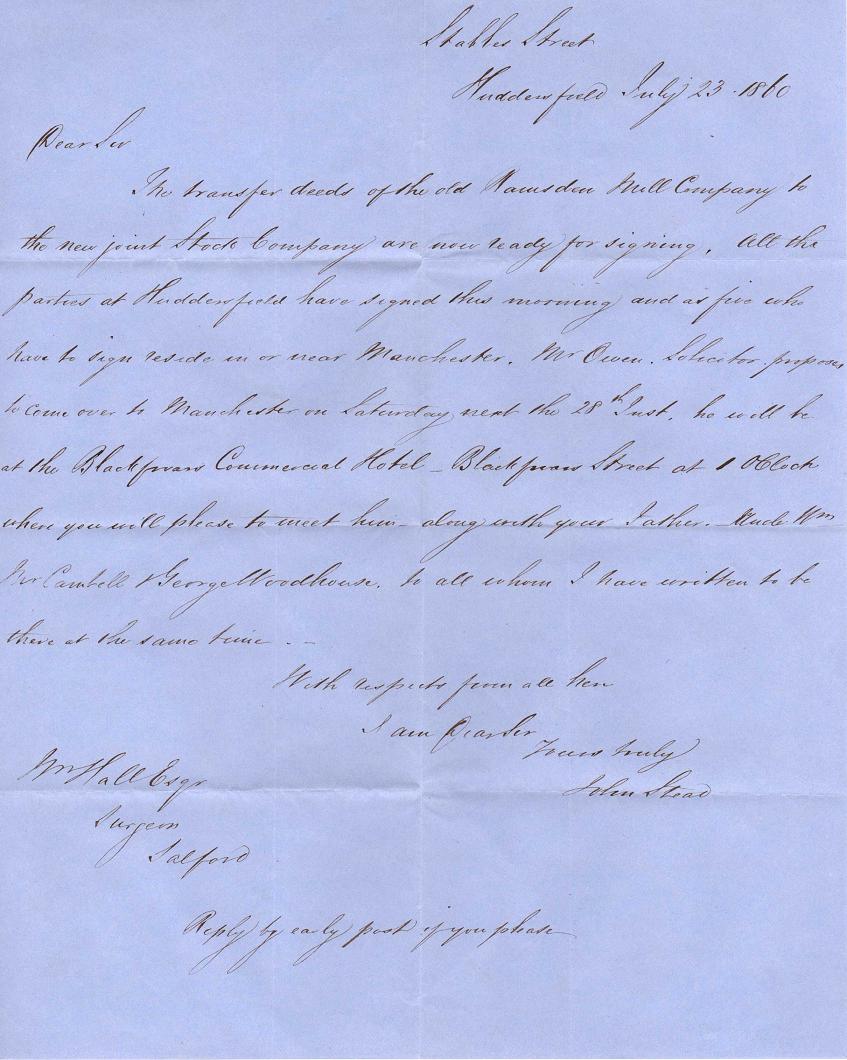 Stables Street
Huddersfield July 23 . 1860
Dear Sir
The transfer deeds of the old Ramsden Mill Company to
the new joint Stock Company are now ready for signing . All the
parties at Huddersfield have signed this morning and as five who
have to sign reside in or near Manchester . Mr Owen . Solicitor . proposes
to come over to Manchester on Saturday next the 28th Inst . he will be
at the Blackfriars Commercial Hotel _ Blackfriars Street at 1 OClock
where you will please to meet him _ along with your Father . Uncle Wm
Mr Cambell & George Woodhouse . to all whom I have written to be
there at the same time . _
With respects from all here
I am Dear Sir
Yours truly
John Stead
Wm Hall Esqr
Surgeon
Salford
Reply by early post if you please